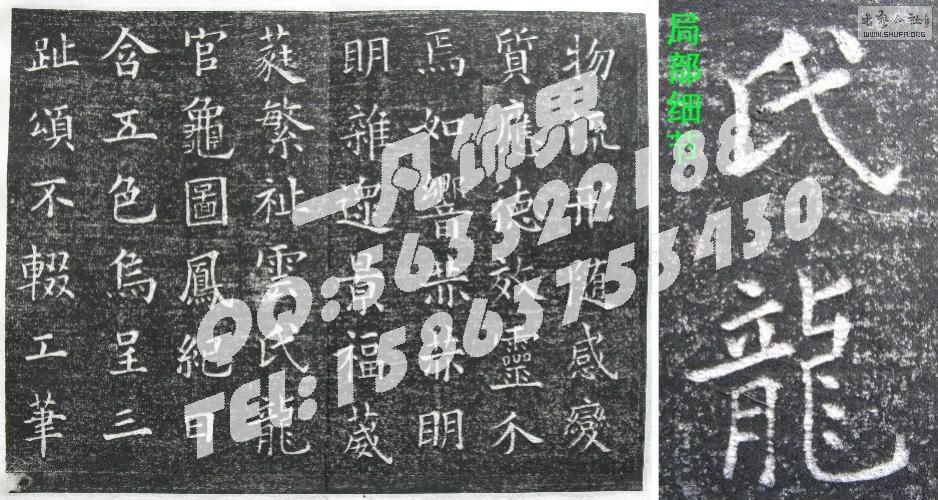 物流形随感變
質應德效靈不
焉如響赫赫明
明雜遝景福葳
蕤繁祉雲氏龍
官龜圖鳳紀日
含五色烏呈三
趾頌不輟工筆
局部细节
氏龍
一凡饰界
QQ:563322188
TEL:15863753430
书艺公社
WWW.SHUFA.ORG